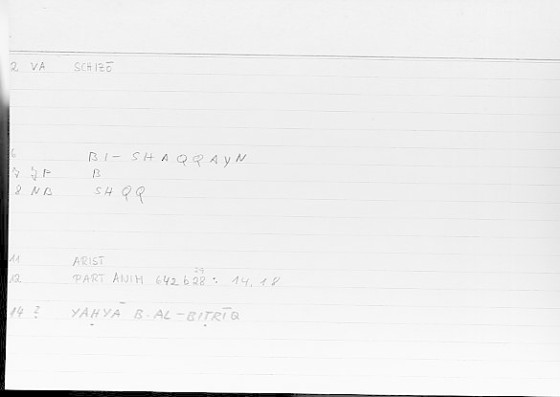 2 VA SCHIZŌ
6 BI-SHAQQAYN
7 JF B
8 NB SHQQ
11 ARIST
12 PART ANIM 642b28: 14,18
29
14 ? YAḤYĀ B. AL-BIṬRĪQ